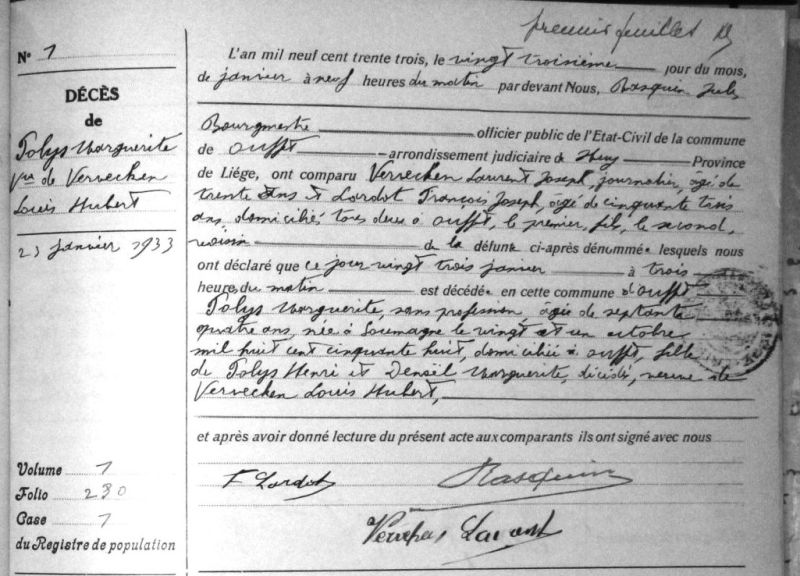 premier feuillet
N° 1
DÉCÈS
de
Tolys Marguerite
Vve de Vervecken
Louis Hubert
23 janvier 1933
Volume 1
Folio 230
Case 1
du Registre de population
L'an mil neuf cent trente trois, le vingt troisième jour du mois,
de janvier à neuf heures du matin par devant Nous, Rasquin Jules
Bourgmestre officier public de l'Etat-Civil de la commune
de Ouffet arrondissement judiciaire de Huy Province
de Liége, ont comparu Vervecken Laurent Joseph, journalier, âgé de
trente ans et Lardot François Joseph, âgé de cinquante trois
ans, domiciliés tous deux à Ouffet, le premier, fils, le second,
voisin de la défunte ci-après dénommée lesquels nous
ont déclaré que ce jour vingt trois janvier à trois
heures du matin est décédée en cette commune d'Ouffet
Tolys Marguerite, sans profession, âgée de septante
quatre ans, née à Soumagne le vingt et un octobre
mil huit cent cinquante huit, domiciliée à Ouffet, fille
de Tolys Henri et Marguerite, décédés, veuve de
Vervecken Louis Hubert,
et après avoir donné lecture du présent acte aux comparants ils ont signé avec nous
F Lardot Rasquin
Laurent